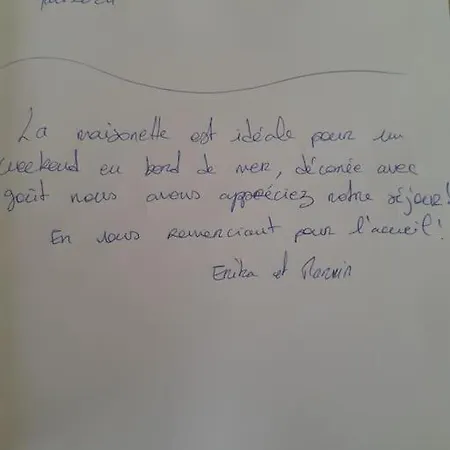 La maisonette est idéale pour un
weekend en bord de mer, décorée avec
goût nous avons appréciez notre séjour!
En vous remerciant pour l'accueil!
Erika et